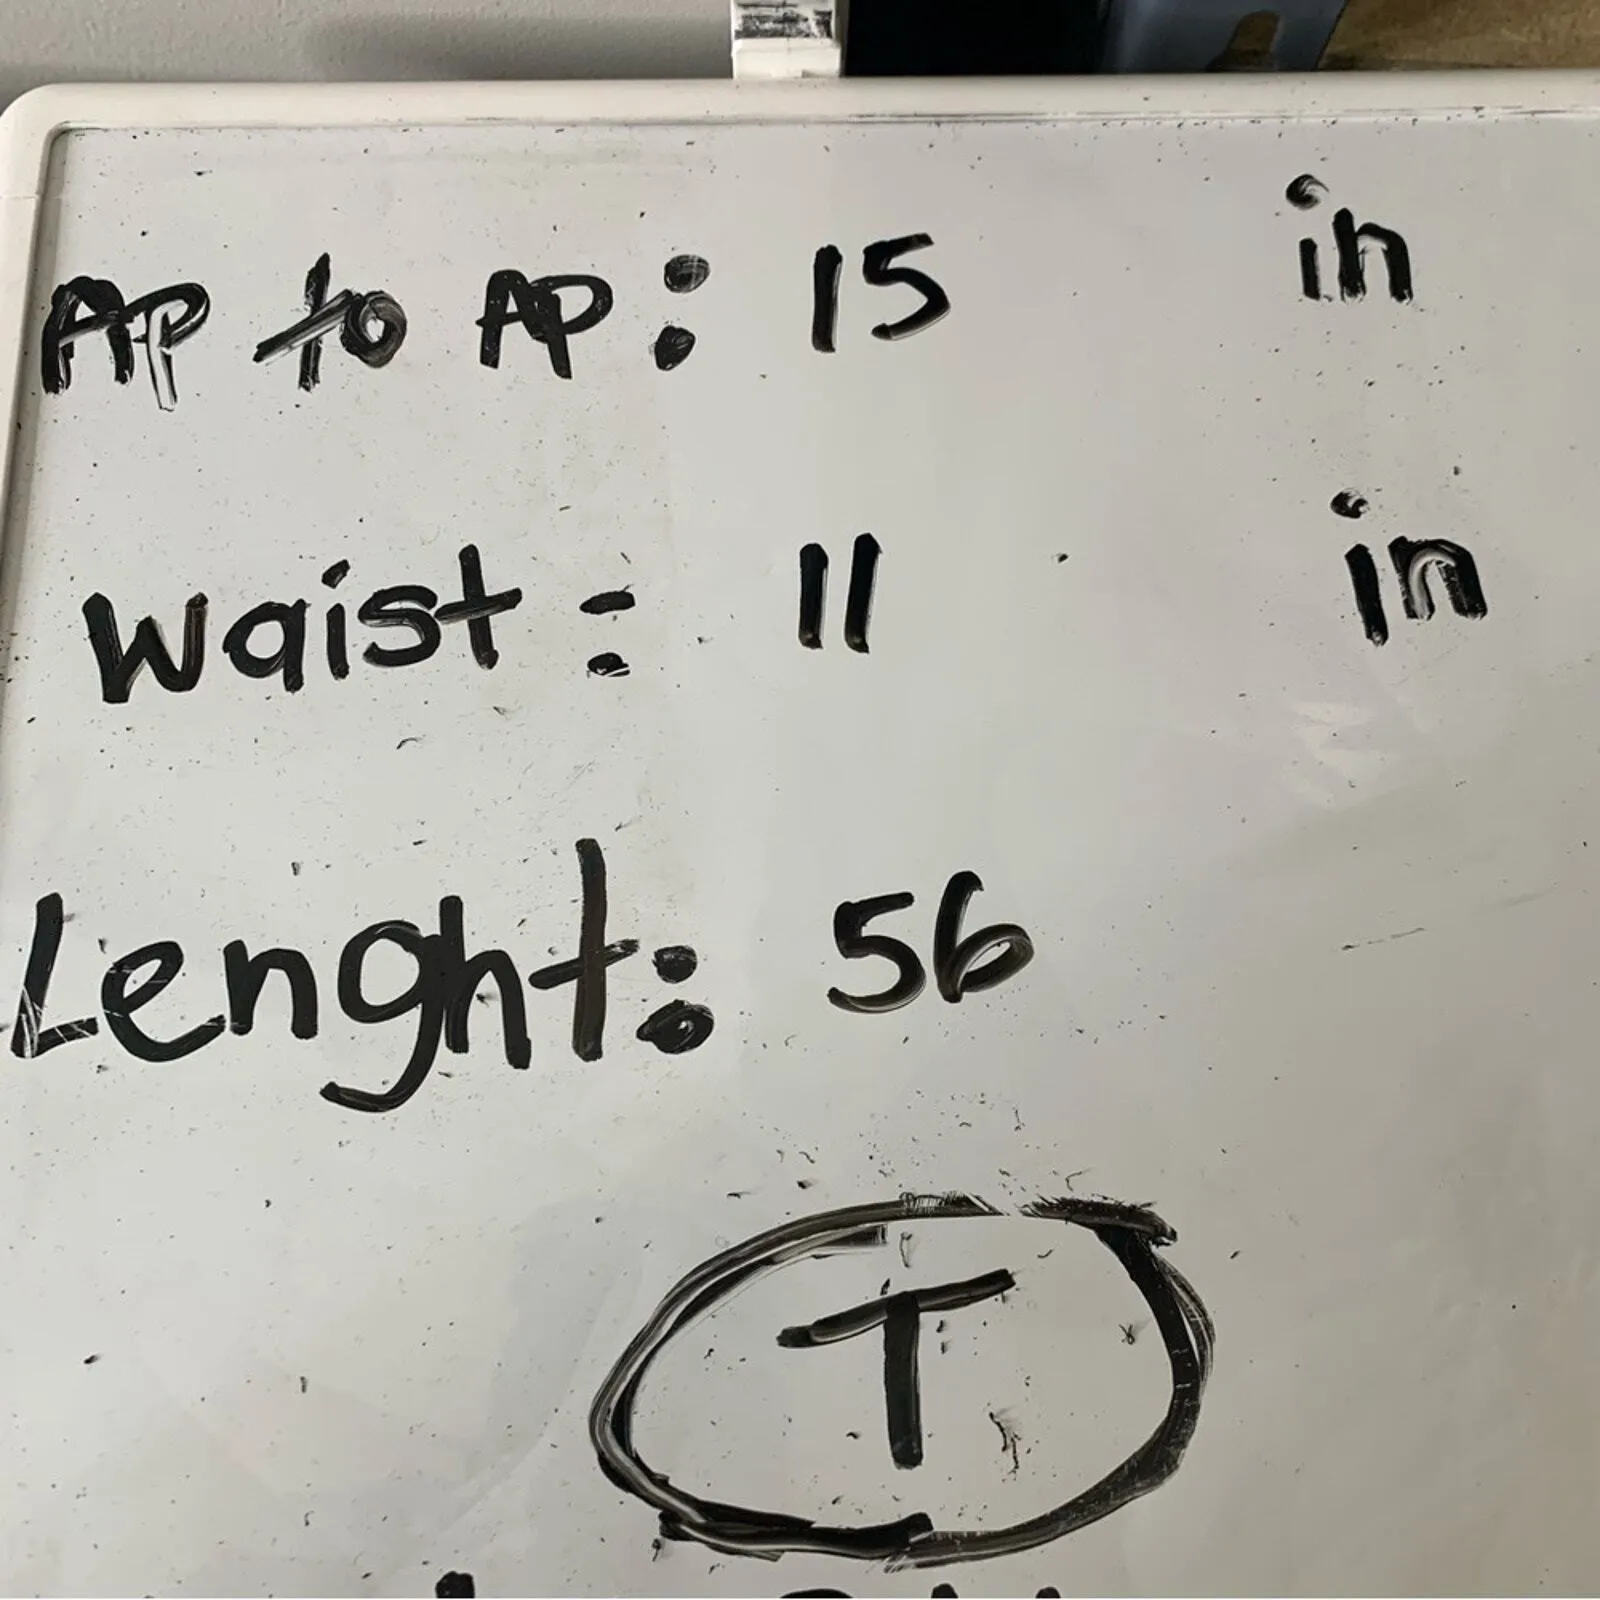 Ap to AP: 15 in
Waist: 11 in
Lenght: 56
T